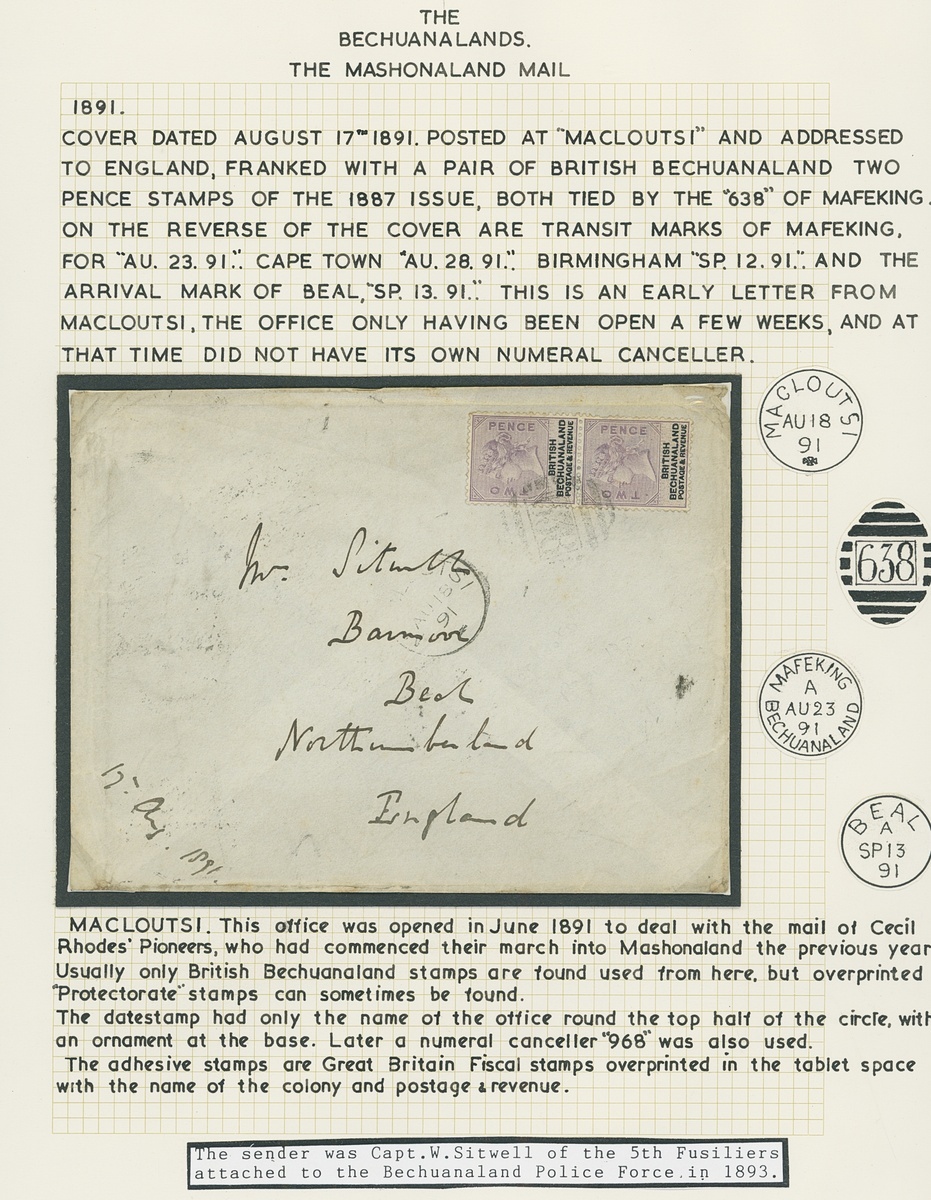 THE
BECHUANALANDS.
THE MASHONALAND MAIL
1891.
COVER DATED AUGUST 17TH 1891. POSTED AT "MACLOUTSI" AND ADDRESSED
TO ENGLAND, FRANKED WITH A PAIR OF BRITISH BECHUANALAND TWO
PENCE STAMPS OF THE 1887 ISSUE, BOTH TIED BY THE "638" OF MAFEKING.
ON THE REVERSE OF THE COVER ARE TRANSIT MARKS OF MAFEKING,
FOR "AU. 23. 91.". CAPE TOWN "AU. 28. 91.". BIRMINGHAM "SP. 12. 91.". AND THE
ARRIVAL MARK OF BEAL, "SP. 13. 91." THIS IS AN EARLY LETTER FROM
MACLOUTSI, THE OFFICE ONLY HAVING BEEN OPEN A FEW WEEKS, AND AT
THAT TIME DID NOT HAVE ITS OWN NUMERAL CANCELLER.
PENCE
TWO
BRITISH
BECHUANALAND
POSTAGE & REVENUE
PENCE
TWO
BRITISH
BECHUANALAND
POSTAGE & REVENUE
Sitwell
Barmoor
Beal
Northumberland
England
Aug. 1891
AU 18
91
MACLOUTSI
AU 18
91
638
MAFEKING
A
AU 23
91
BECHUANALAND
BEAL
A
SP 13
91
MACLOUTSI. This office was opened in June 1891 to deal with the mail of Cecil
Rhodes' Pioneers, who had commenced their march into Mashonaland the previous year
Usually only British Bechuanaland stamps are found used from here, but overprinted
"Protectorate" stamps can sometimes be found.
The datestamp had only the name of the office round the top half of the circle, with
an ornament at the base. Later a numeral canceller "968" was also used.
The adhesive stamps are Great Britain Fiscal stamps overprinted in the tablet space
with the name of the colony and postage & revenue.
The sender was Capt.W.Sitwell of the 5th Fusiliers
attached to the Bechuanaland Police Force in 1893.